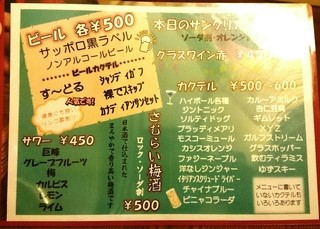 ビール 各¥500
サッポロ黒ラベル
ノンアルコールビール
ビールカクテル
す〜どる
シャンディ ガフ
裸でスキップ
カナディアンサンセット
サワー ¥450
巨峰
グレープフルーツ
梅
カルピス
レモン
ライム
さむらい梅酒
ロック・ソーダ割
日本酒で仕込まれた
まろやかで香り高い梅酒です
¥500
本日のサングリア
ソーダ割・オレンジ
グラスワイン赤
カクテル ¥500〜600
ハイボール各種
ジントニック
ソルティドッグ
ブラッディメアリ
モスコーミュール
カシスオレンジ
ファジーネーブル
洋なしジンジャー
イタリアンスクリュードライバー
チャイナブルー
ピニャコラーダ
カルーアミルク
杏仁豆腐
ギムレット
XYZ
ガルフストリーム
グラスホッパー
飲むティラミス
ゆずスキー
メニューに書いて
いないカクテルも
いろいろあります